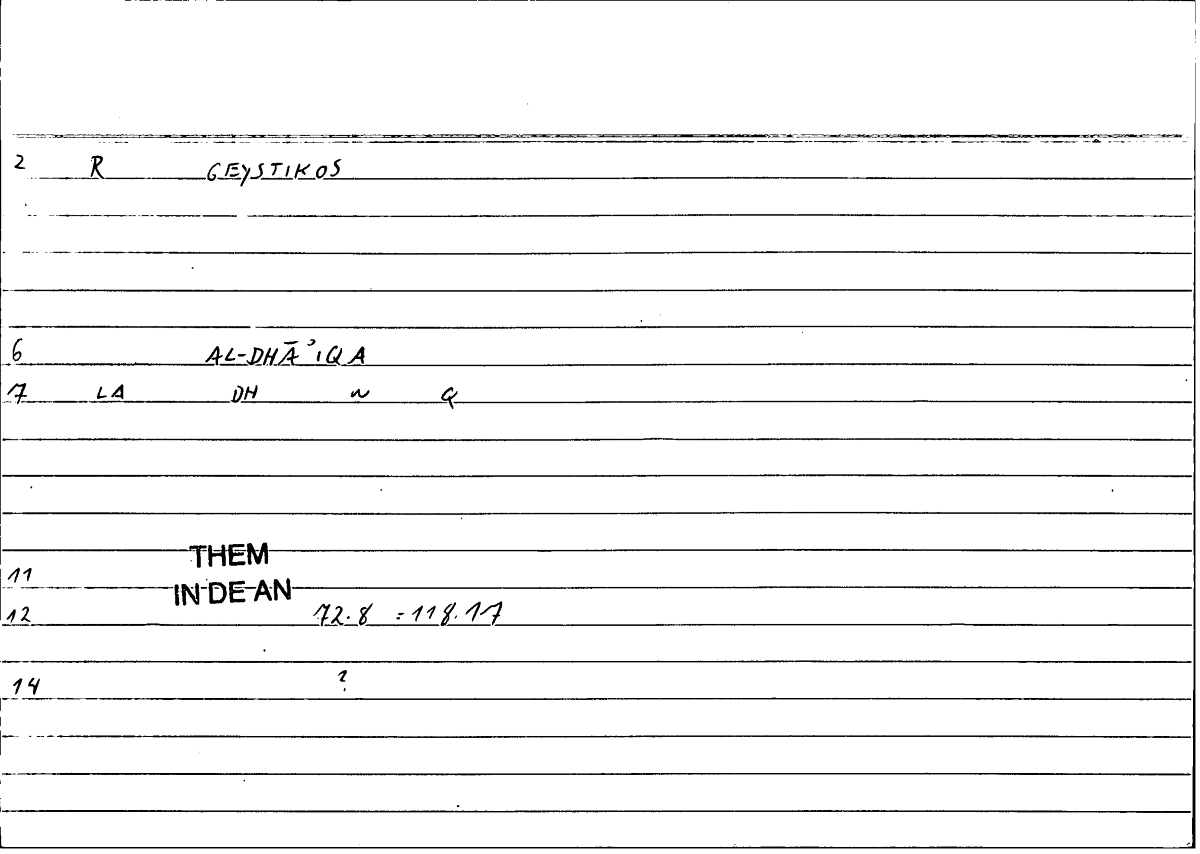 2 R GEYSTIKOS
6 AL-DHĀʾIQA
7 LA DH W Q
THEM
11
IN DE AN
12 72.8 =118.17
14 ?